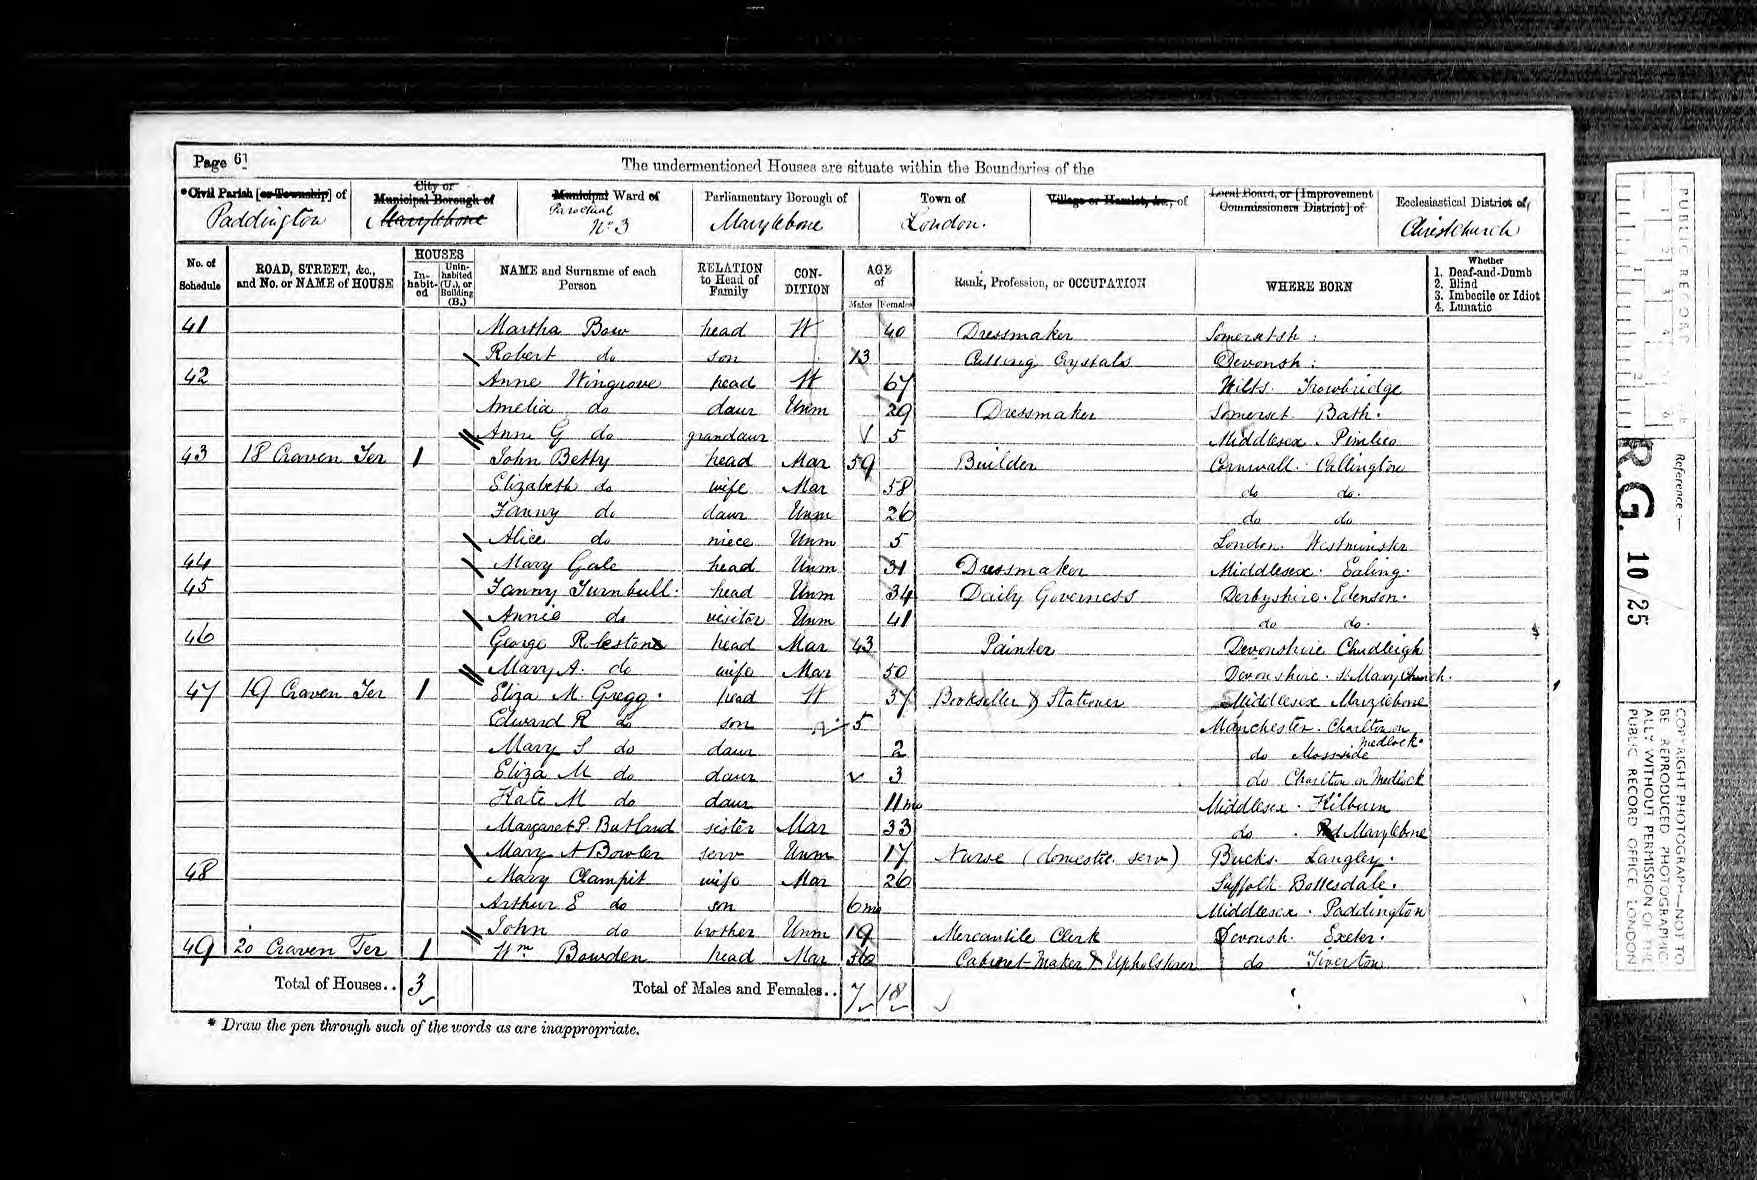 Page 61
The undermentioned Houses are situate within the Boundaries of the
*Civil Parish [or Township] of
Paddington
City or
Municipal Borough of
Marylebone
Municipal Ward of
Parochial
No 3
Parliamentary Borough of
Marylebone
Town of
London.
Village or Hamlet, &c., of
Local Board, or [Improvement
Commissioners District] of
Ecclesiastical District of
Christchurch
No. of
Schedule
ROAD, STREET, &c.,
and No. or NAME of HOUSE
HOUSES
In-
habit-
ed
Unin-
habited
(U.), or
Building
(B.)
NAME and Surname of each
Person
RELATION
to Head of
Family
CON-
DITION
AGE
of
Males Females
Rank, Profession, or OCCUPATION
WHERE BORN
Whether
1. Deaf-and-Dumb
2. Blind
3. Imbecile or Idiot
4. Lunatic
41 Martha Bow head W 40 Dressmaker Somersetsh:
Robert do son 13 Cutting Crystals Devonsh:
42 Anne Wingrove head W 67 Wilts. Trowbridge
Amelia do daur Unm 29 Dressmaker Somerset Bath.
Anne G do grandaur 5 Middlesex. Pimlico
43 18 Craven Ter 1 John Betty head Mar 59 Builder Cornwall. Callington
Elizabeth do wife Mar 58 do do.
Fanny do daur Unm 26 do do
Alice do niece Unm 5 London. Westminster
44 Mary Gale head Unm 31 Dressmaker Middlesex. Ealing.
45 Fanny Turnbull. head Unm 34 Daily Governess Derbyshire. Edenson.
Annie do visitor Unm 41 do do.
46 George Robestone head Mar 43 Painter Devonshire Chudleigh
Mary A. do wife Mar 50 Devonshire. St Mary Church.
47 19 Craven Ter 1 Eliza M. Gregg. head W 37 Bookseller & Stationer Middlesex Marylebone
Edward R do son 5 Manchester. Charlton on
Medlock.
Mary S do daur 2 do Mossside
Eliza M do daur 3 do Charlton on Medlock
Kate M do daur 11mo Middlesex. Kilburn
Margaret P. Butland sister Mar 33 do. Marylebone
Mary A Bowler serv Unm 17 Nurse (domestic serv) Bucks. Langley.
48 Mary Clampit wife Mar 26 Suffolk Bottesdale.
Arthur E do son 6mo Middlesex. Paddington
John do brother Unm 19 Mercantile Clerk Devonsh. Exeter.
49 20 Craven Ter 1 Wm Bowden head Mar 36 Cabinet Maker & Upholsterer do Tiverton
Total of Houses.. 3
Total of Males and Females.. 7 18
* Draw the pen through such of the words as are inappropriate.
PUBLIC RECORD
Reference:—
R.G. 10/25
COPYRIGHT PHOTOGRAPH—NOT TO
BE REPRODUCED PHOTOGRAPHIC-
ALLY WITHOUT PERMISSION OF THE
PUBLIC RECORD OFFICE, LONDON